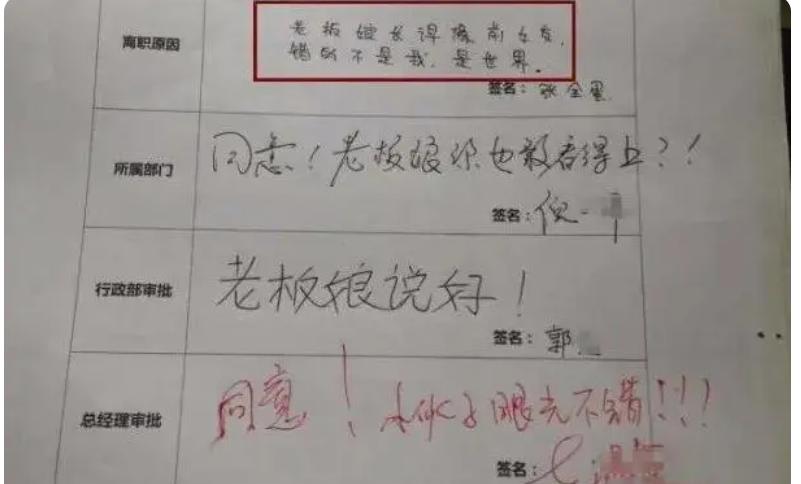 离职原因
老板娘长得像前女友，
错的不是我，是世界。
签名：张全蛋
所属部门
同意！老板娘你也敢看得上？！
签名：倪一
行政部审批
老板娘说好！
签名：郭
总经理审批
同意！小伙子眼光不错！！！
签名：